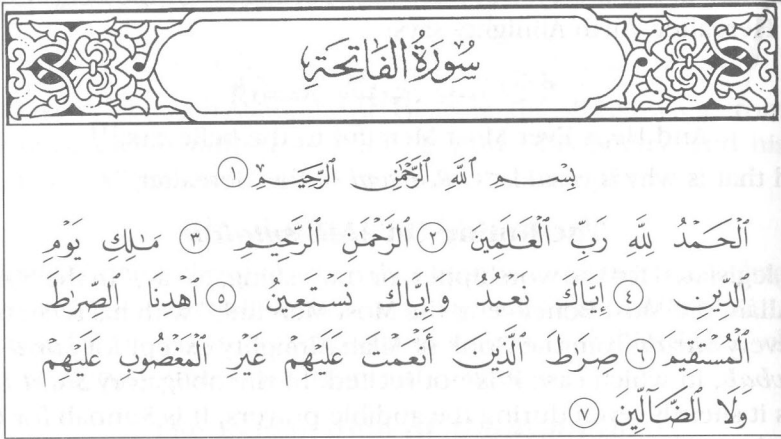 سُورَةُ الْفَاتِحَةِ
بِسْمِ ٱللَّهِ ٱلرَّحْمَٰنِ ٱلرَّحِيمِ ١
ٱلْحَمْدُ لِلَّهِ رَبِّ ٱلْعَٰلَمِينَ ٢ ٱلرَّحْمَٰنِ ٱلرَّحِيمِ ٣ مَٰلِكِ يَوْمِ
ٱلدِّينِ ٤ إِيَّاكَ نَعْبُدُ وَإِيَّاكَ نَسْتَعِينُ ٥ ٱهْدِنَا ٱلصِّرَٰطَ
ٱلْمُسْتَقِيمَ ٦ صِرَٰطَ ٱلَّذِينَ أَنْعَمْتَ عَلَيْهِمْ غَيْرِ ٱلْمَغْضُوبِ عَلَيْهِمْ
وَلَا ٱلضَّآلِّينَ ٧